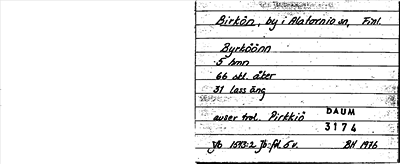 Birkön, by i Alatornio sn, Finl.
Byrköönn
5 hmn
66 skl. åker
31 lass äng
avser trol. Pirkkiö
DAUM
3174
Jb 1543:2 Jb: fol 5 v. BH 1976